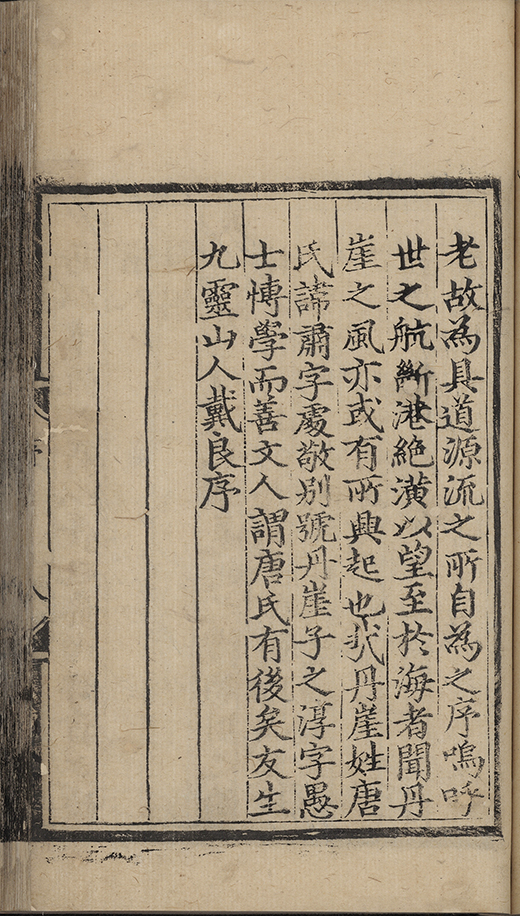 老故為具道源流之所自為之序嗚呼
世之航斷港絶潢以望至於海者聞丹
崖之風亦或有所興起也㢤丹崖姓唐
氏諱肅字處敬别號丹崖子之淳字愚
士愽學而善文人謂唐氏有後矣友生
九靈山人戴良序